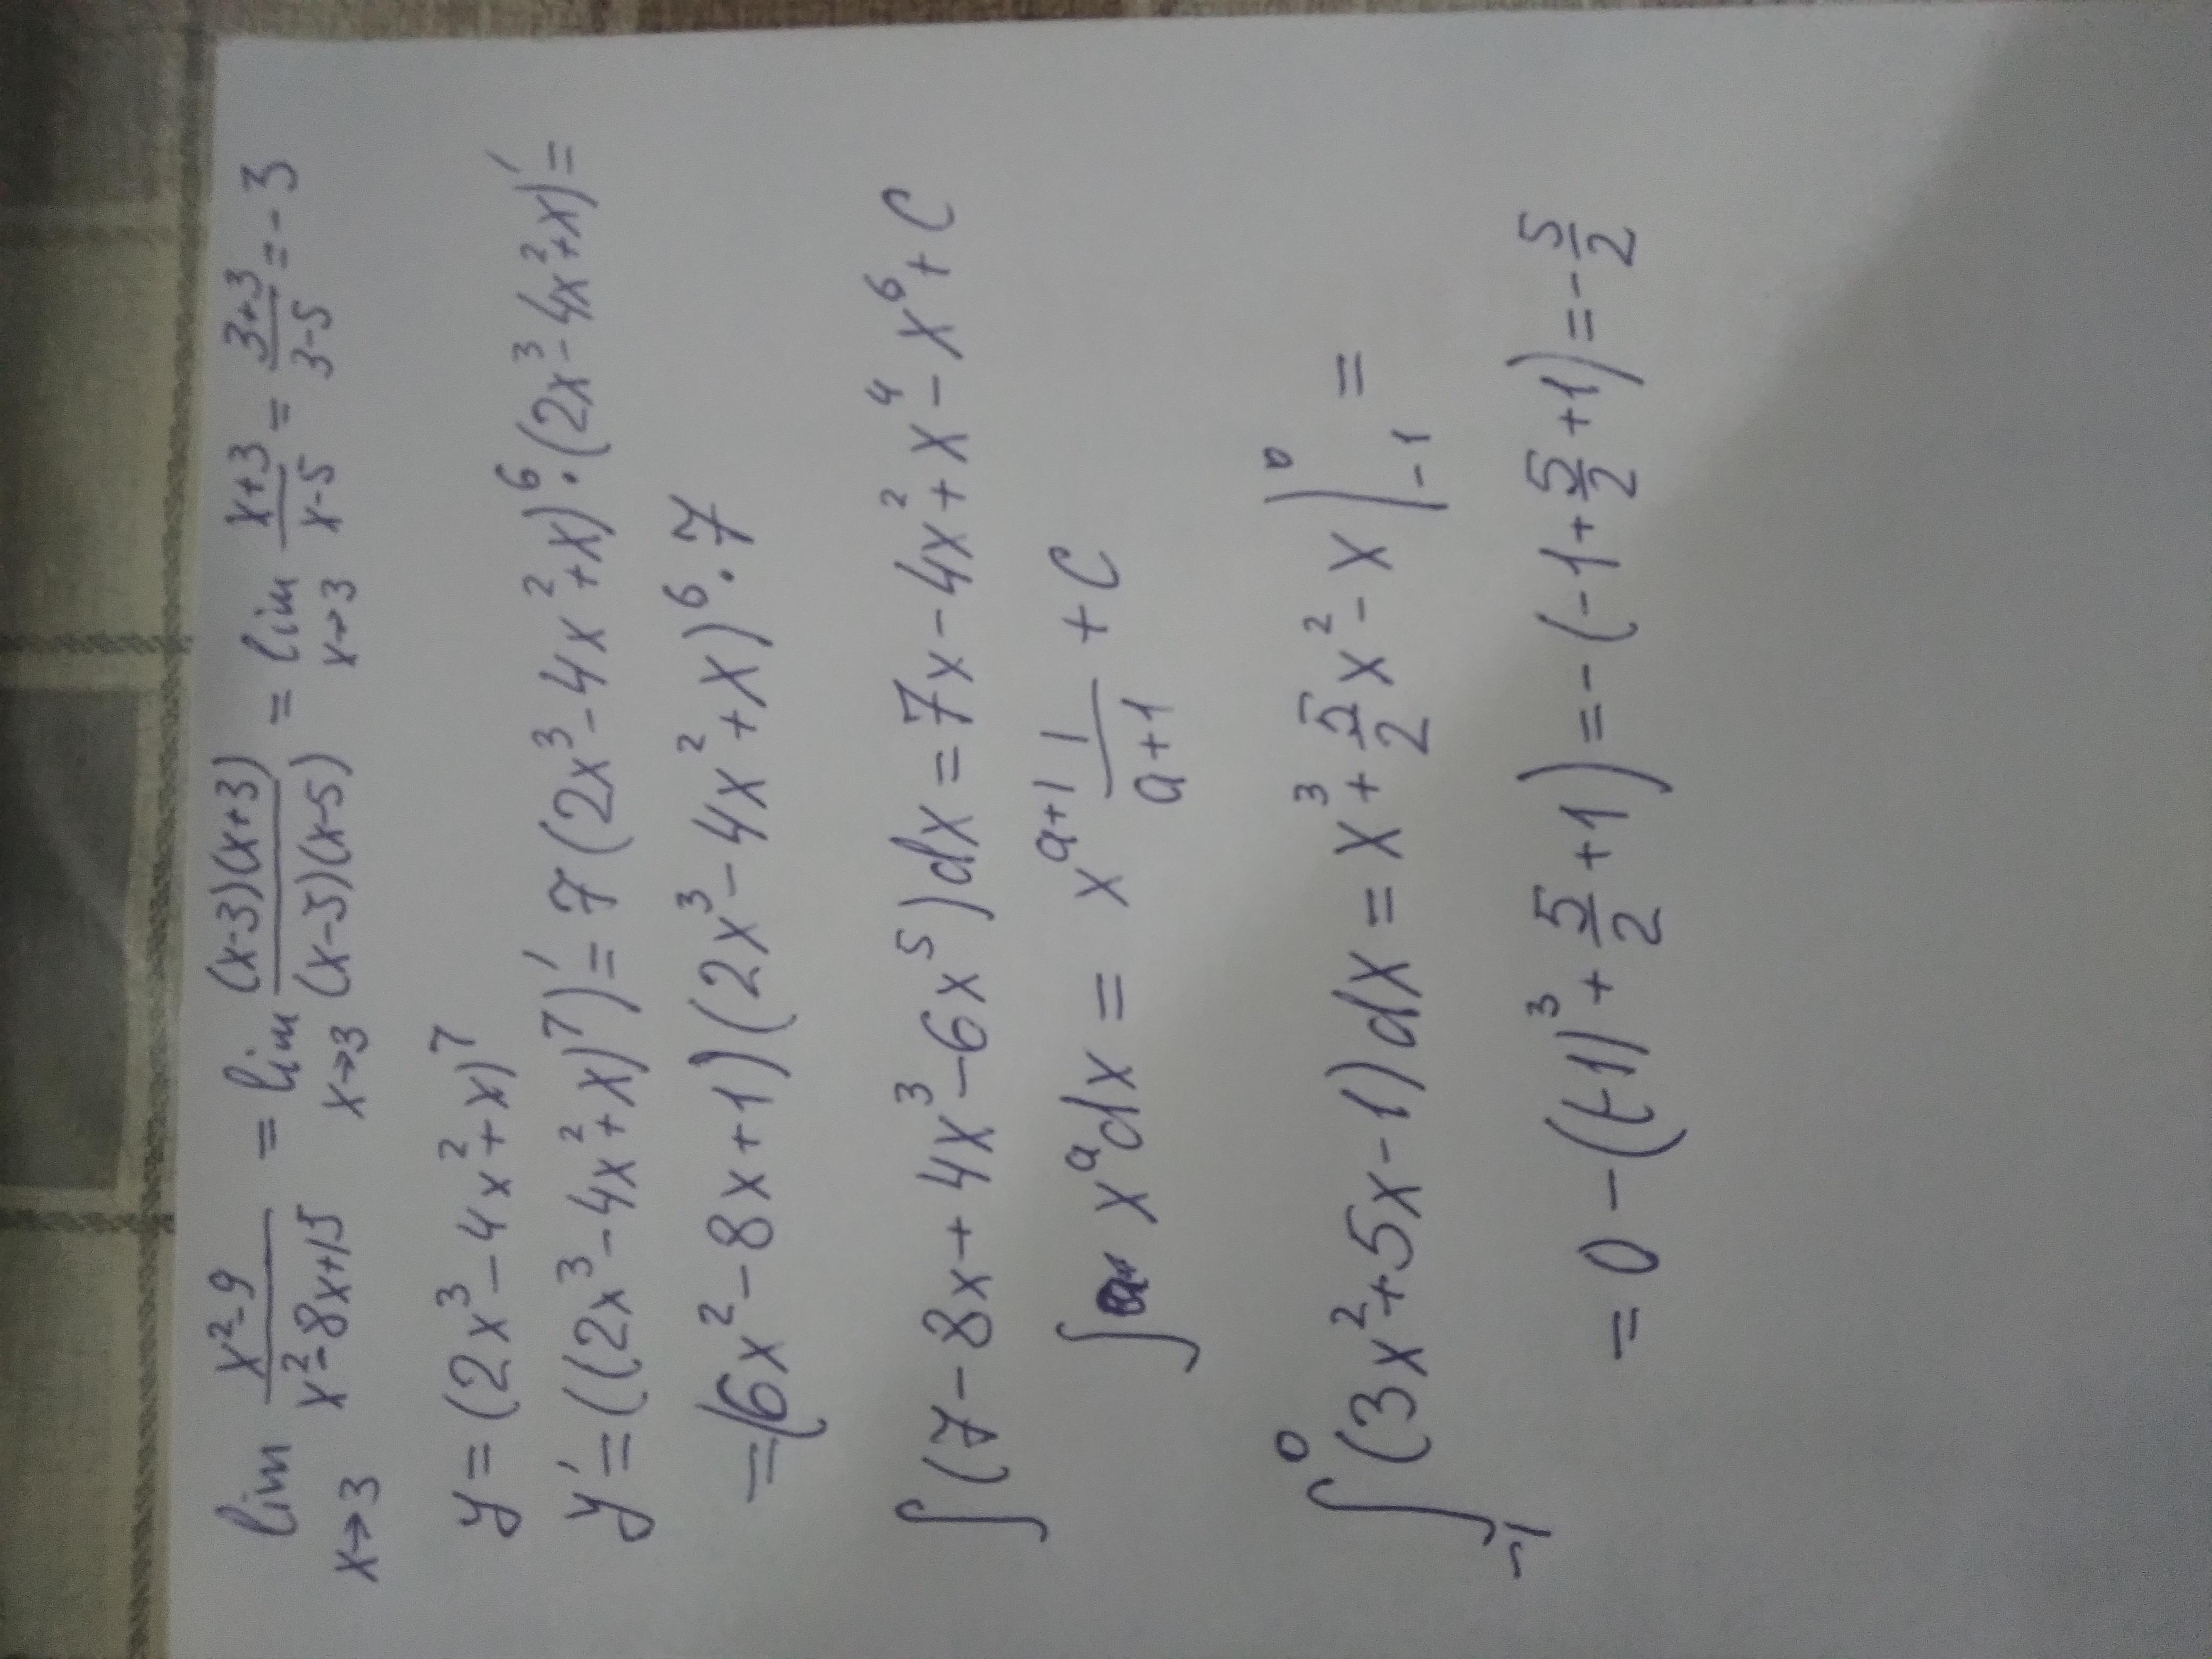 lim x→3 (x²-9)/(x²-8x+15) = lim x→3 ((x-3)(x+3))/((x-3)(x-5)) = lim x→3 (x+3)/(x-5) = (3+3)/(3-5) = -3
y = (2x³-4x²+x)⁷
y' = ((2x³-4x²+x)⁷)' = 7(2x³-4x²+x)⁶·(2x³-4x²+x)' =
= (6x²-8x+1)(2x³-4x²+x)⁶·7
∫(7-8x+4x³-6x⁵)dx = 7x-4x²+x⁴-x⁶+C
∫ xᵃdx = xᵃ⁺¹ 1/(a+1) + C
∫₋₁⁰(3x²+5x-1)dx = x³+5/2x²-x|₋₁⁰ =
= 0-((-1)³+5/2+1) = -(-1+5/2+1) = -5/2